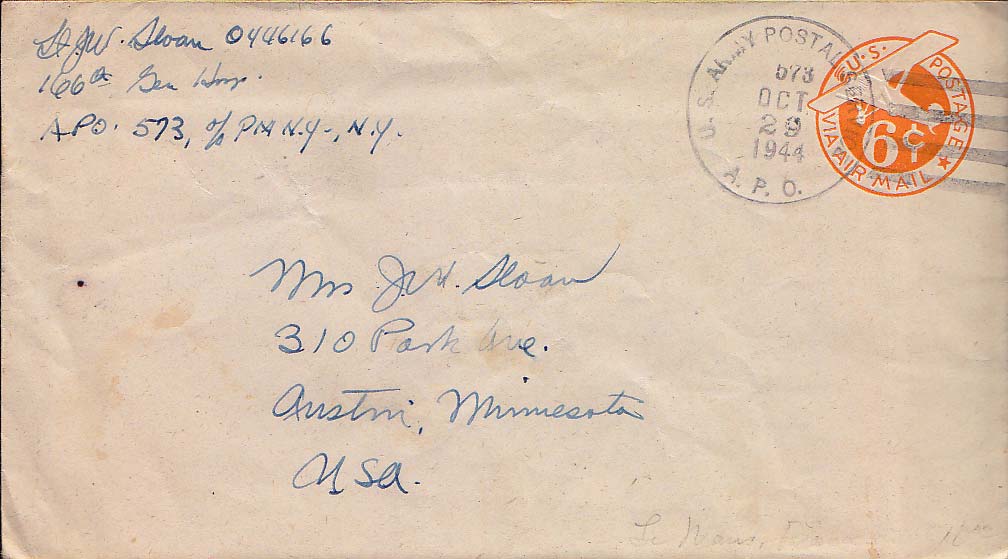 Lt. J.W. Sloan 0446166
166th Gen Hosp.
A.P.O. 573, c/o PM N.Y., N.Y.
U.S. ARMY POSTAL
573
OCT
29
1944
A.P.O.
U.S. POSTAGE
6¢
VIA AIR MAIL
Mrs J.W. Sloan
310 Park Ave.
Austin, Minnesota
USA.
Le Mans,